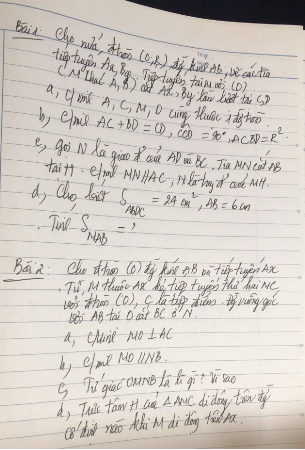 Bài 1: Cho nửa đ tròn (O, R) đg kính AB, vẽ các tia
tiếp tuyến Ax, By. Tiếp tuyến tại M với (O)
(M khác A, B) cắt Ax, By lần lượt tại C, D
a, c/mil A, C, M, O cùng thuộc 1 đg tròn
b, c/mil AC + BD = CD, COD = 90°, AC.BD = R².
c, gọi N là giao đ của AD và BC. Tia MN cắt AB
tại H. c/mil MN // AC, N là tr đ của MH.
d, Cho biết S ABDC = 24 cm², AB = 6 cm
Tính S MAB = ?
Bài 2: Cho đ tròn (O) đg kính AB và tiếp tuyến Ax
Từ M thuộc Ax kẻ tiếp tuyến thứ hai MC
với đ tròn (O), C là tiếp điểm. Đg vuông góc
với AB tại O cắt BC ở N
a, c/mil MO ⊥ AC
b, c/mil MO // NB.
c, Tứ giác OMNB là h gì? Vì sao
d, Trực tâm H của △AMC di động trên đg
cố định nào khi M di động trên Ax.